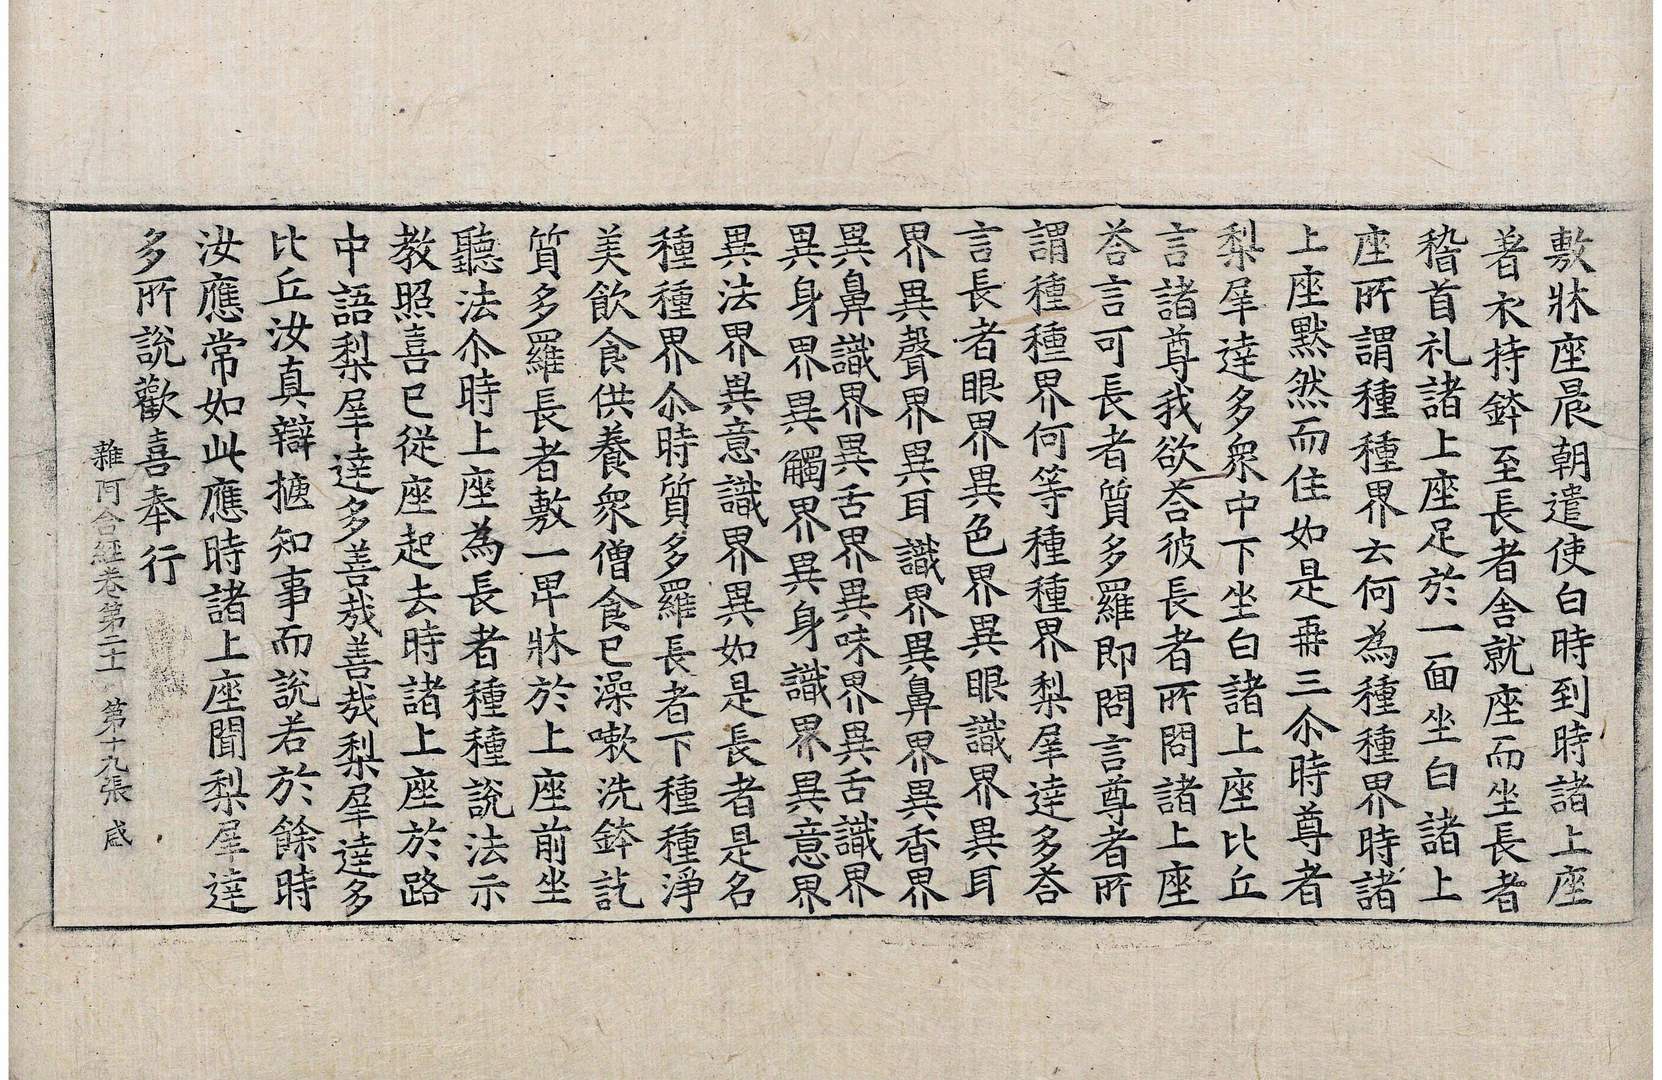 敷牀座晨朝遣使白時到時諸上座
著衣持鉢至長者舍就座而坐長者
稽首礼諸上座足於一面坐白諸上
座所謂種種界云何為種種界時諸
上座黙然而住如是再三尒時尊者
梨犀達多衆中下坐白諸上座比丘
言諸尊我欲荅彼長者所問諸上座
荅言可長者質多羅即問言尊者所
謂種種界何等種種界梨犀達多荅
言長者眼界異色界異眼識界異耳
界異聲界異耳識界異鼻界異香界
異鼻識界異舌界異味界異舌識界
異身界異觸界異身識界異意界
異法界異意識界異如是長者是名
種種界尒時質多羅長者下種種淨
美飲食供養衆僧食已澡嗽洗鉢訖
質多羅長者敷一卑牀於上座前坐
聽法尒時上座為長者種種說法示
教照喜已從座起去時諸上座於路
中語梨犀達多善哉善哉梨犀達多
比丘汝真辯捷知事而說若於餘時
汝應常如此應時諸上座聞梨犀達
多所說歡喜奉行
雜阿含經卷第二十一 第十九張 盛